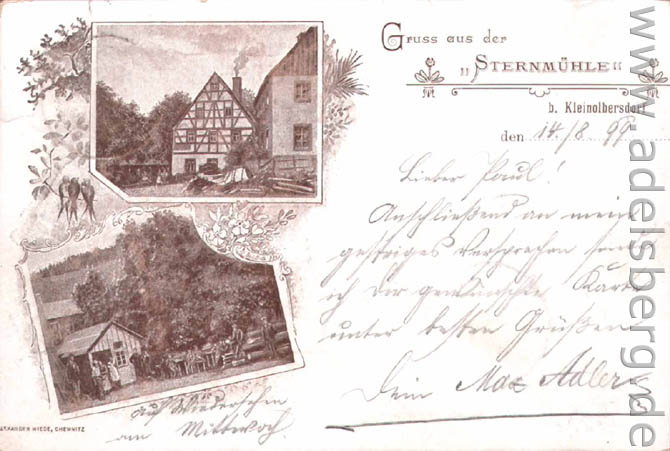 Gruss aus der
„STERNMÜHLE“
b. Kleinolbersdorf
den 14./8 99
Lieber Paul!
Anschließend an mein
gestriges Versprechen
ich Dir gewünschte Karte
unter besten Grüßen
Dein Max Adler
auf Wiedersehen
am Mittwoch.
ALEXANDER WIEDE, CHEMNITZ
www.adelsberg.de